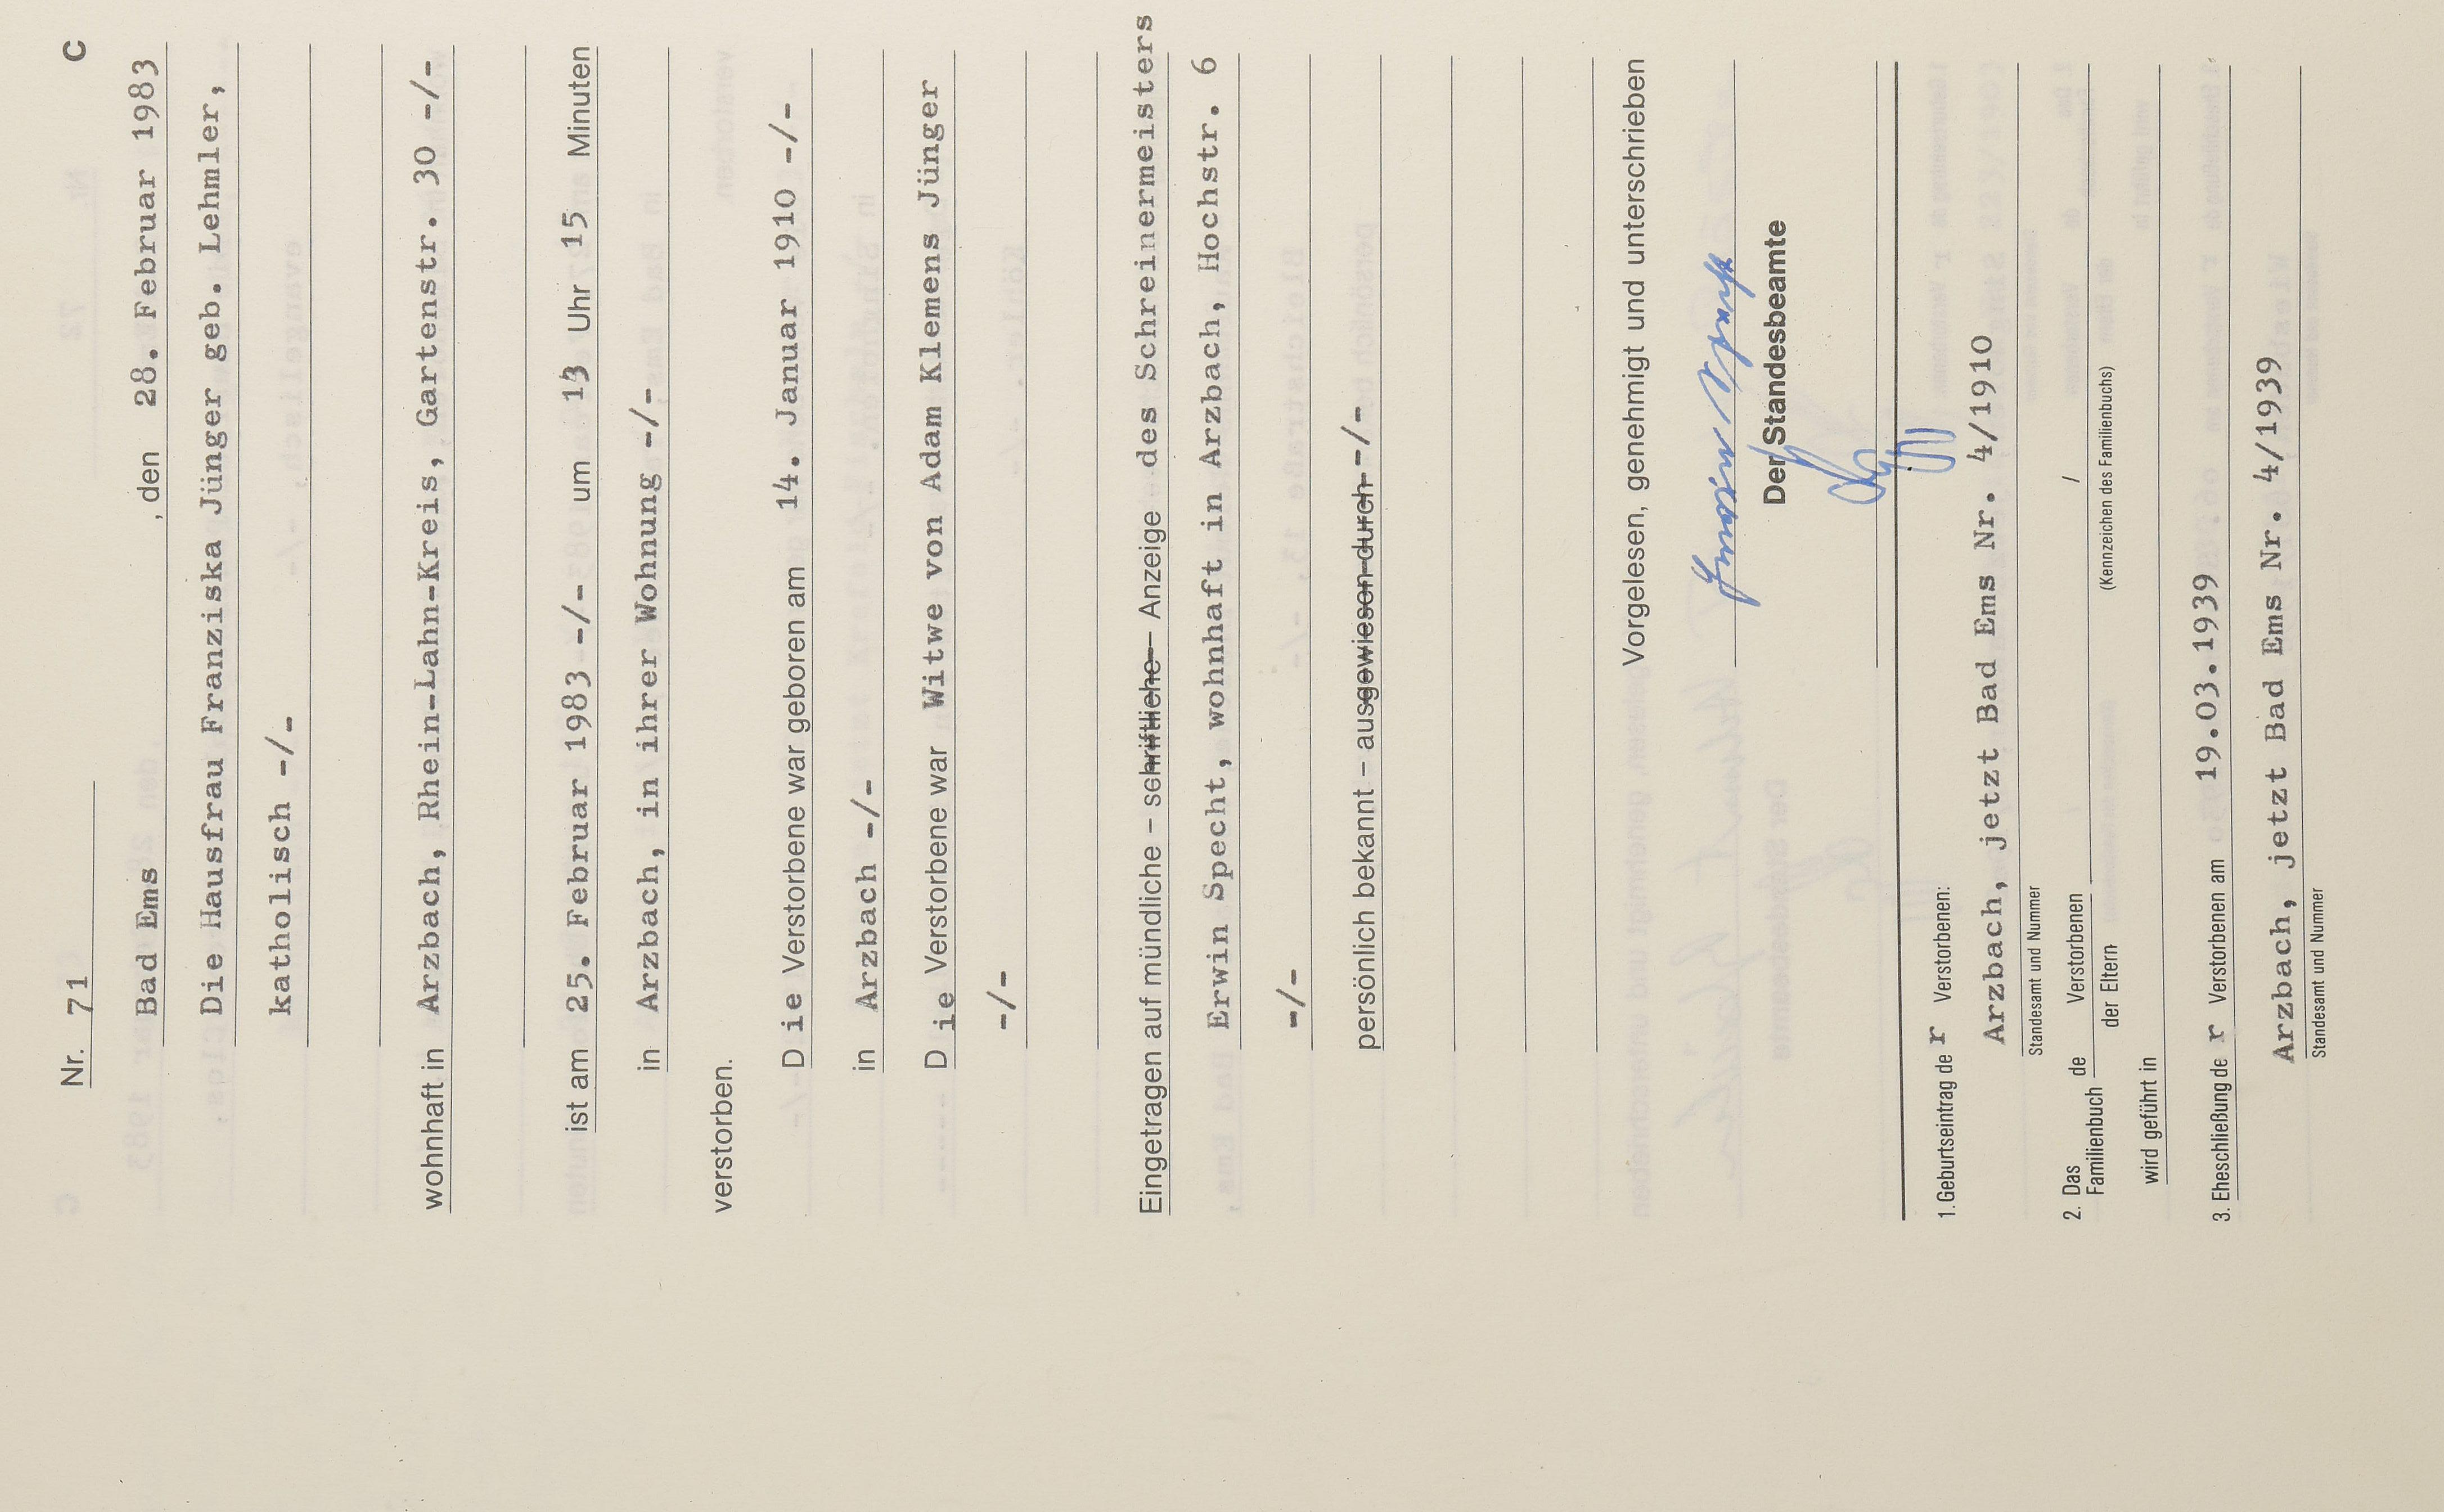 C
Nr. 71
Bad Ems , den 28. Februar 1983
Die Hausfrau Franziska Jünger geb. Lehmler,
katholisch -/-
wohnhaft in Arzbach, Rhein-Lahn-Kreis, Gartenstr. 30 -/-
ist am 25. Februar 1983 -/- um 13 Uhr 15 Minuten
in Arzbach, in ihrer Wohnung -/-
verstorben.
Die Verstorbene war geboren am 14. Januar 1910 -/-
in Arzbach -/-
Die Verstorbene war Witwe von Adam Klemens Jünger
-/-
Eingetragen auf mündliche – schriftliche – Anzeige des Schreinermeisters
Erwin Specht, wohnhaft in Arzbach, Hochstr. 6
-/-
persönlich bekannt – ausgewiesen durch -/-
Vorgelesen, genehmigt und unterschrieben
Der Standesbeamte
1. Geburtseintrag der Verstorbenen:
Arzbach, jetzt Bad Ems Nr. 4/1910
Standesamt und Nummer
2. Das Familienbuch de Verstorbenen /
der Eltern (Kennzeichen des Familienbuchs)
wird geführt in
3. Eheschließung der Verstorbenen am 19.03.1939
Arzbach, jetzt Bad Ems Nr. 4/1939
Standesamt und Nummer